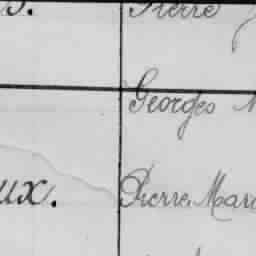 Pierre
Georges
ux. Pierre Marc